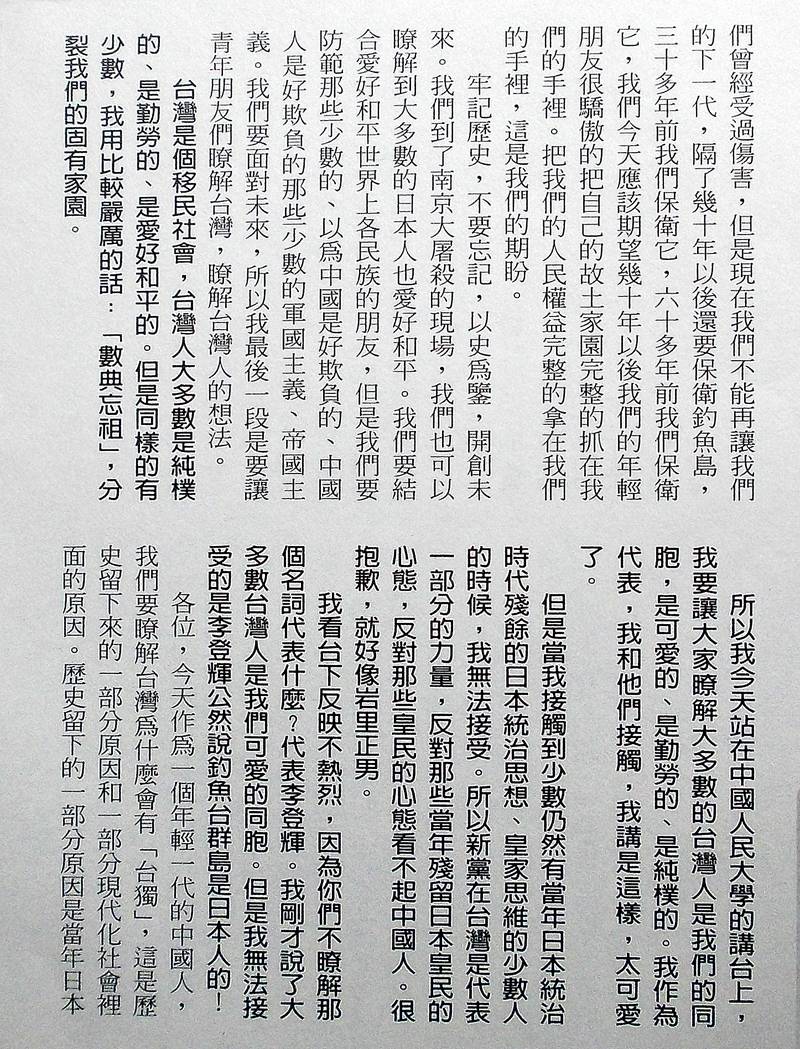 們曾經受過傷害，但是現在我們不能再讓我們
的下一代，隔了幾十年以後還要保衛釣魚島，
三十多年前我們保衛它，六十多年前我們保衛
它，我們今天應該期望幾十年以後我們的年輕
朋友很驕傲的把自己的故土家園完整的抓在我
們的手裡。把我們的人民權益完整的拿在我們
的手裡，這是我們的期盼。
牢記歷史，不要忘記，以史為鑒，開創未
來。我們到了南京大屠殺的現場，我們也可以
瞭解到大多數的日本人也愛好和平。我們要結
合愛好和平世界上各民族的朋友，但是我們要
防範那些少數的、以為中國是好欺負的、中國
人是好欺負的那些少數的軍國主義、帝國主
義。我們要面對未來，所以我最後一段是要讓
青年朋友們瞭解台灣，瞭解台灣人的想法。
台灣是個移民社會，台灣人大多數是純樸
的、是勤勞的、是愛好和平的。但是同樣的有
少數，我用比較嚴厲的話：「數典忘祖」，分
裂我們的固有家園。
所以我今天站在中國人民大學的講台上，
我要讓大家瞭解大多數的台灣人是我們的同
胞，是可愛的、是勤勞的、是純樸的。我作為
代表，我和他們接觸，我講是這樣，太可愛
了。
但是當我接觸到少數仍然有當年日本統治
時代殘餘的日本統治思想、皇家思維的少數人
的時候，我無法接受。所以新黨在台灣是代表
一部分的力量，反對那些當年殘留日本皇民的
心態，反對那些皇民的心態看不起中國人。很
抱歉，就好像岩里正男。
我看台下反映不熱烈，因為你們不瞭解那
個名詞代表什麼？代表李登輝。我剛才說了大
多數台灣人是我們可愛的同胞。但是我無法接
受的是李登輝公然說釣魚台群島是日本人的！
各位，今天作為一個年輕一代的中國人，
我們要瞭解台灣為什麼會有「台獨」，這是歷
史留下來的一部分原因和一部分現代化社會裡
面的原因。歷史留下的一部分原因是當年日本